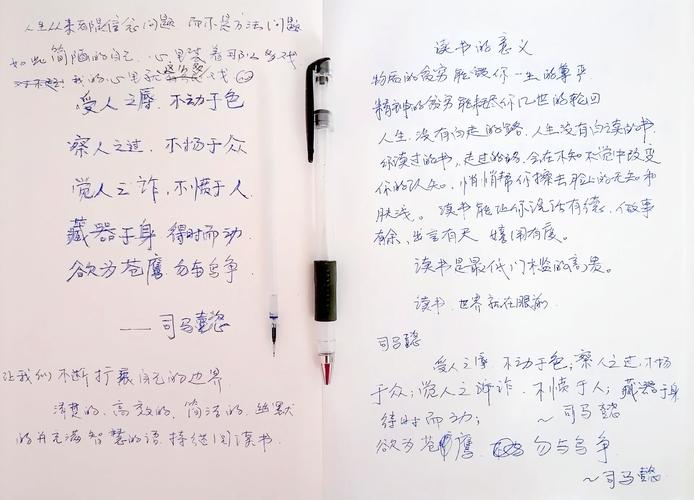 人生从来都是信念问题 而不是方法问题
如此简陋的自己 心里装着
我的心里
受人之辱 不动于色
察人之过 不扬于众
觉人之诈 不愤于人
藏器于身 得时而动
欲为苍鹰 勿与鸟争
——司马懿
让我们不断扩展自己的边界
清楚的、高效的、简洁的、幽默
的并充满智慧的语 持续阅读书
读书的意义
物质的贫穷能毁你一生的尊严
精神的贫穷能耗尽你几世的轮回
人生没有白走的路 人生没有白读的书
你读过的书,走过的路 会在不知不觉中改变
你的认知,悄悄帮你擦去脸上的无知和
肤浅。读书能让你说话有德,做事
有余,出言有 嬉闹有度。
读书是最低门槛的高贵。
读书 世界就在眼前
司马懿
受人之辱 不动于色;察人之过 不扬
于众;觉人之诈 不愤于人;藏器于身
待时而动; ~司马懿
欲为苍鹰 勿与鸟争
~司马懿